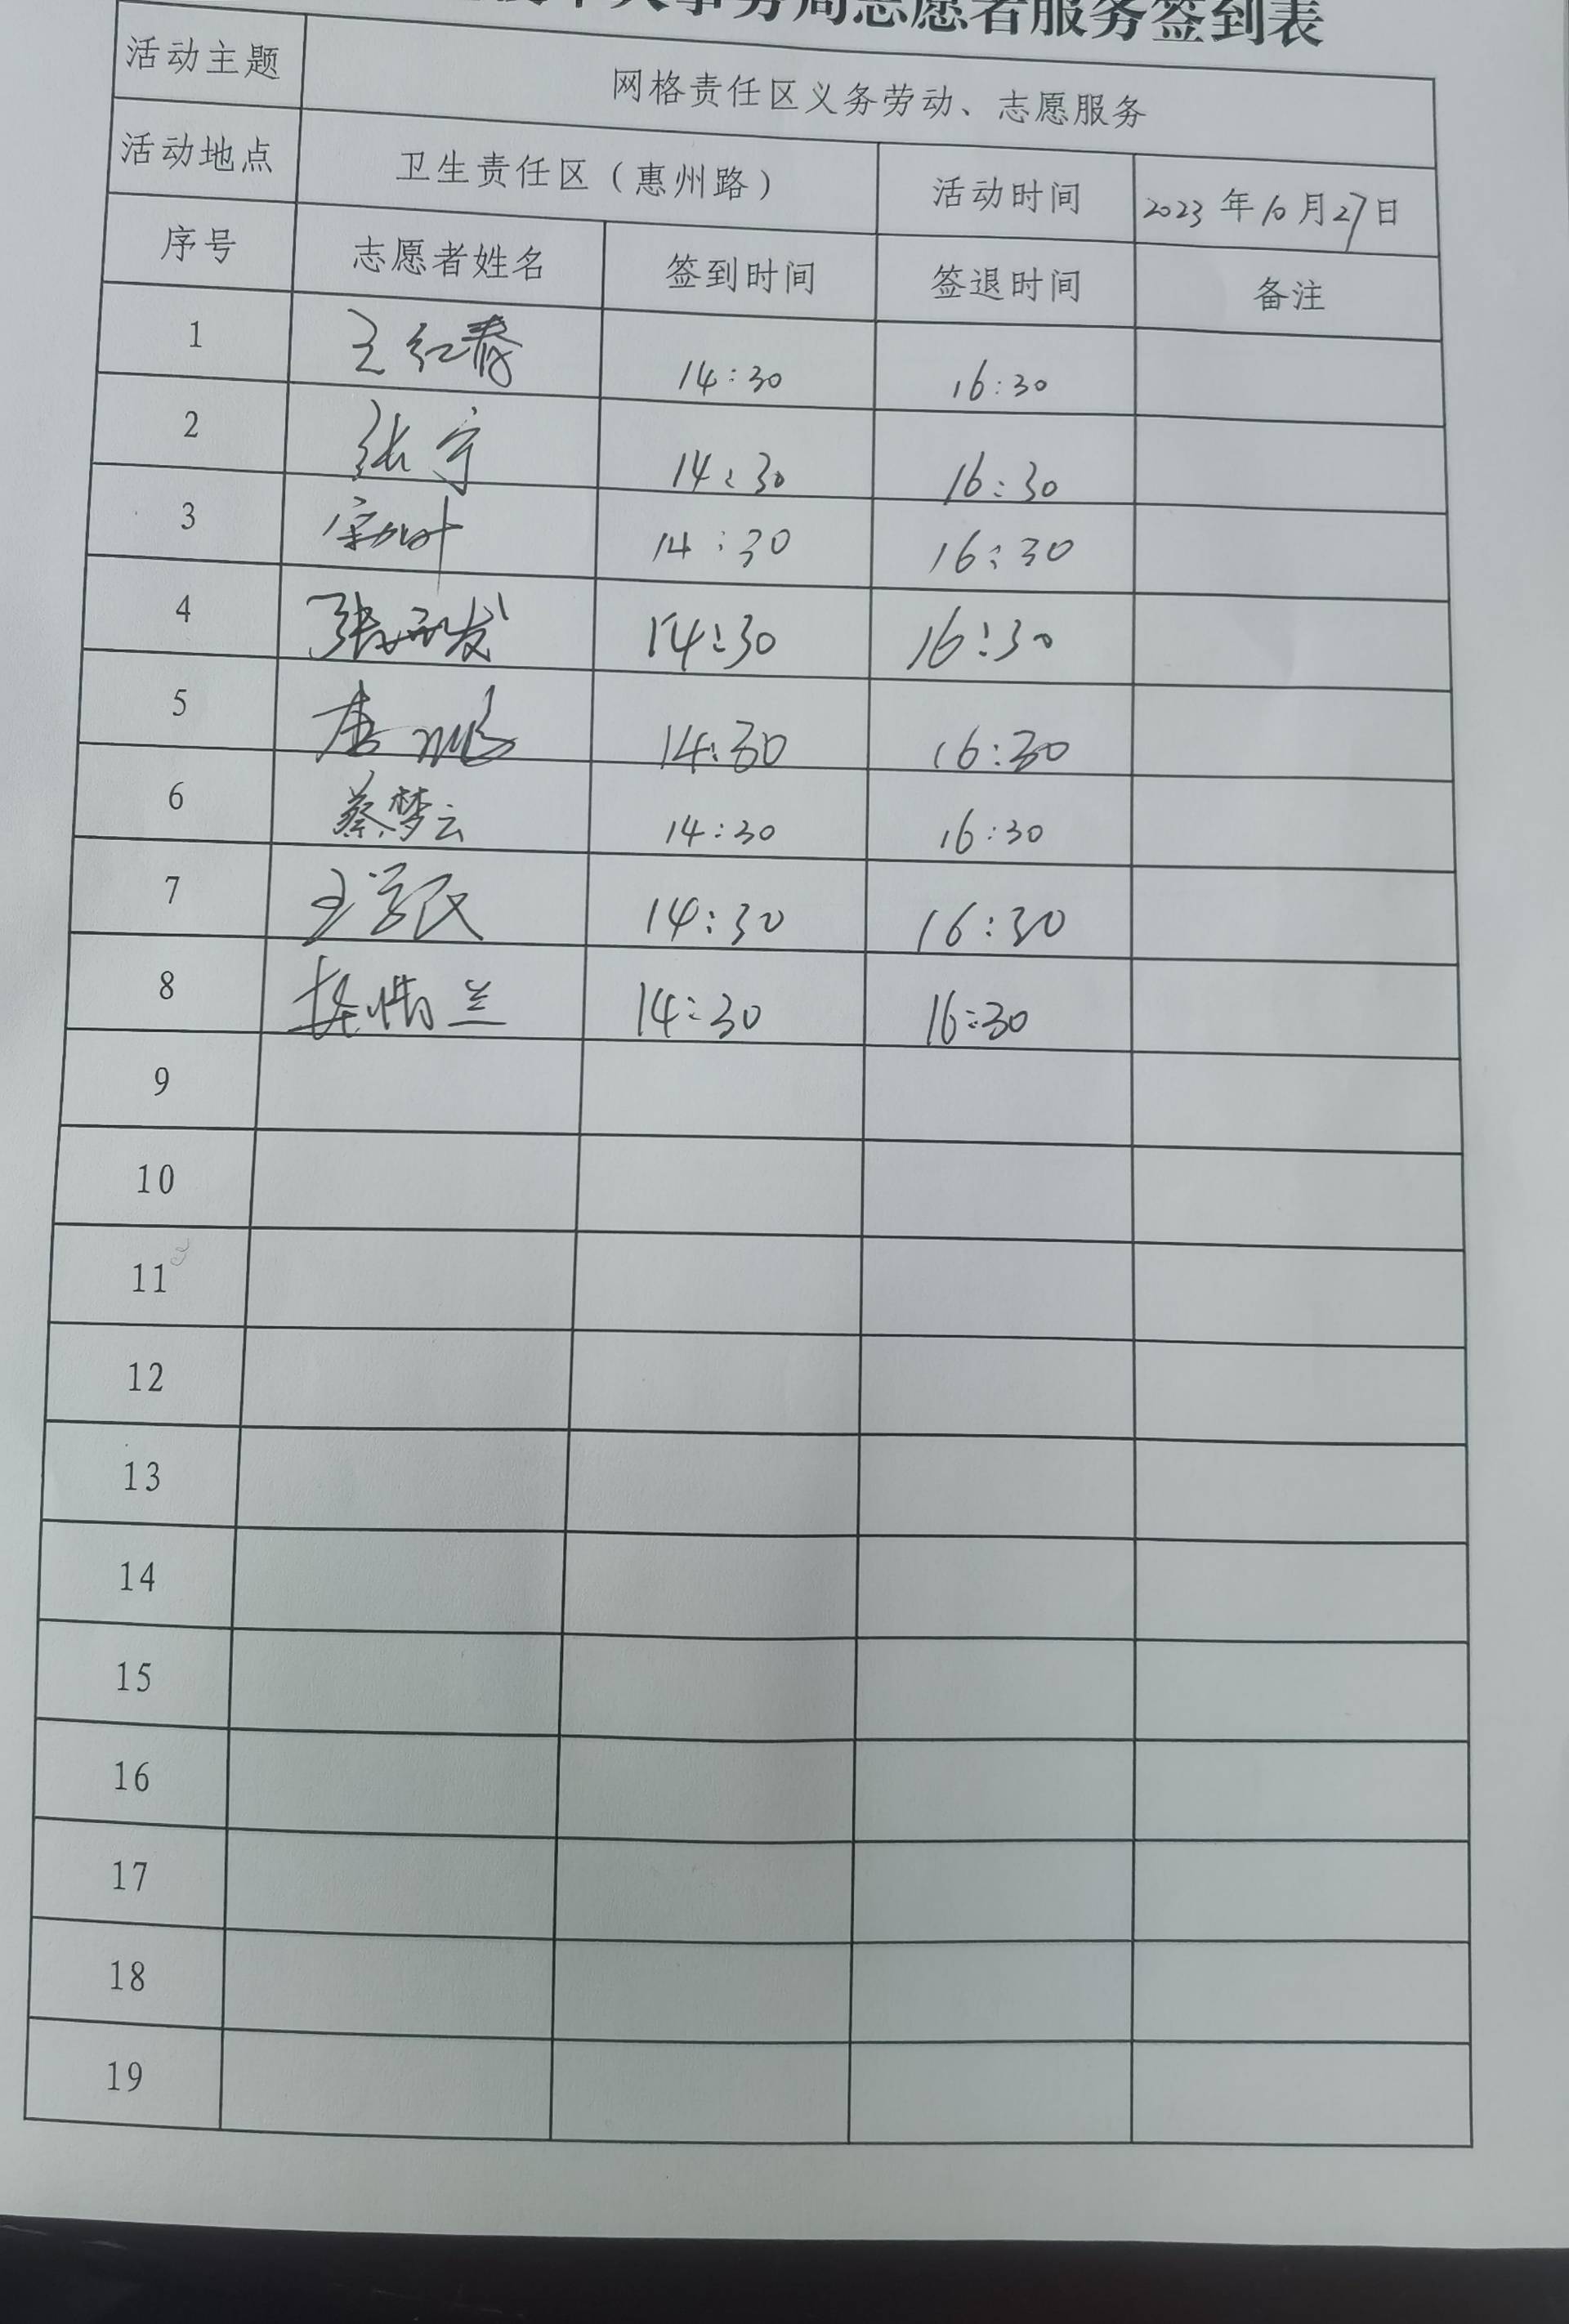 事务局志愿者服务签到表
活动主题 网格责任区义务劳动、志愿服务
活动地点 卫生责任区（惠州路） 活动时间 2023年10月27日
序号 志愿者姓名 签到时间 签退时间 备注
1 王红春 14:30 16:30
2 张宇 14:30 16:30
3 14:30 16:30
4 14:30 16:30
5 14:30 16:30
6 蔡梦云 14:30 16:30
7 王学民 14:30 16:30
8 14:30 16:30
9
10
11
12
13
14
15
16
17
18
19